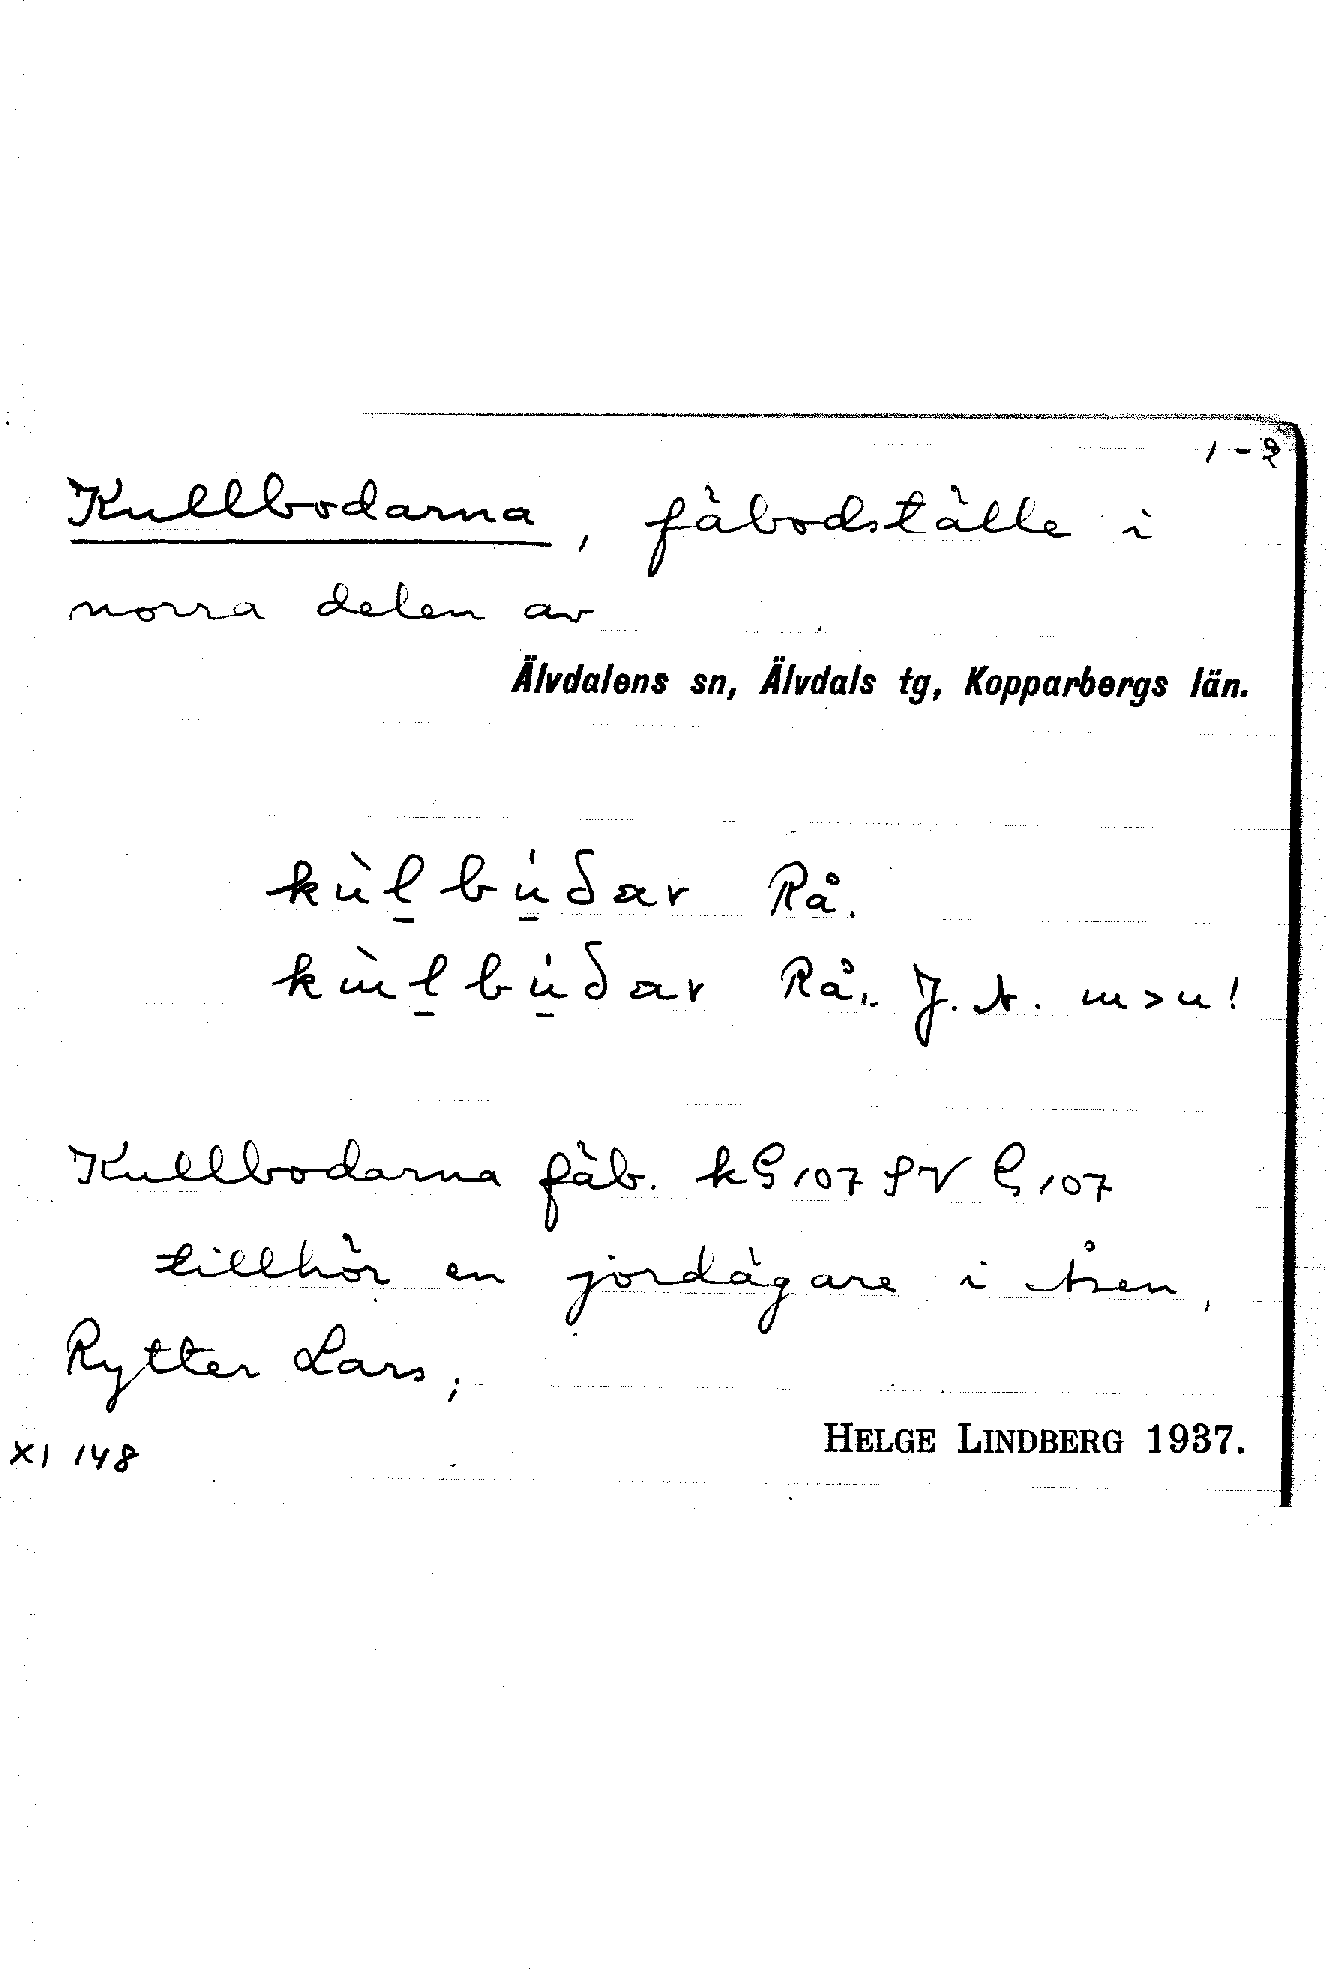 1-2
Kullbodarna, fäbodställe i
norra delen av
Älvdalens sn, Älvdals tg, Kopparbergs län.
kùl̲bu̲̍δar Rå.
kɯ̀l̲bu̲̍δar Rå. J. A. ɯ>u!
Kullbodarna fäb. k G 107 SV G 107
tillhör en jordägare i Åsen,
Rytter Lars;
XI 148
HELGE LINDBERG 1937.